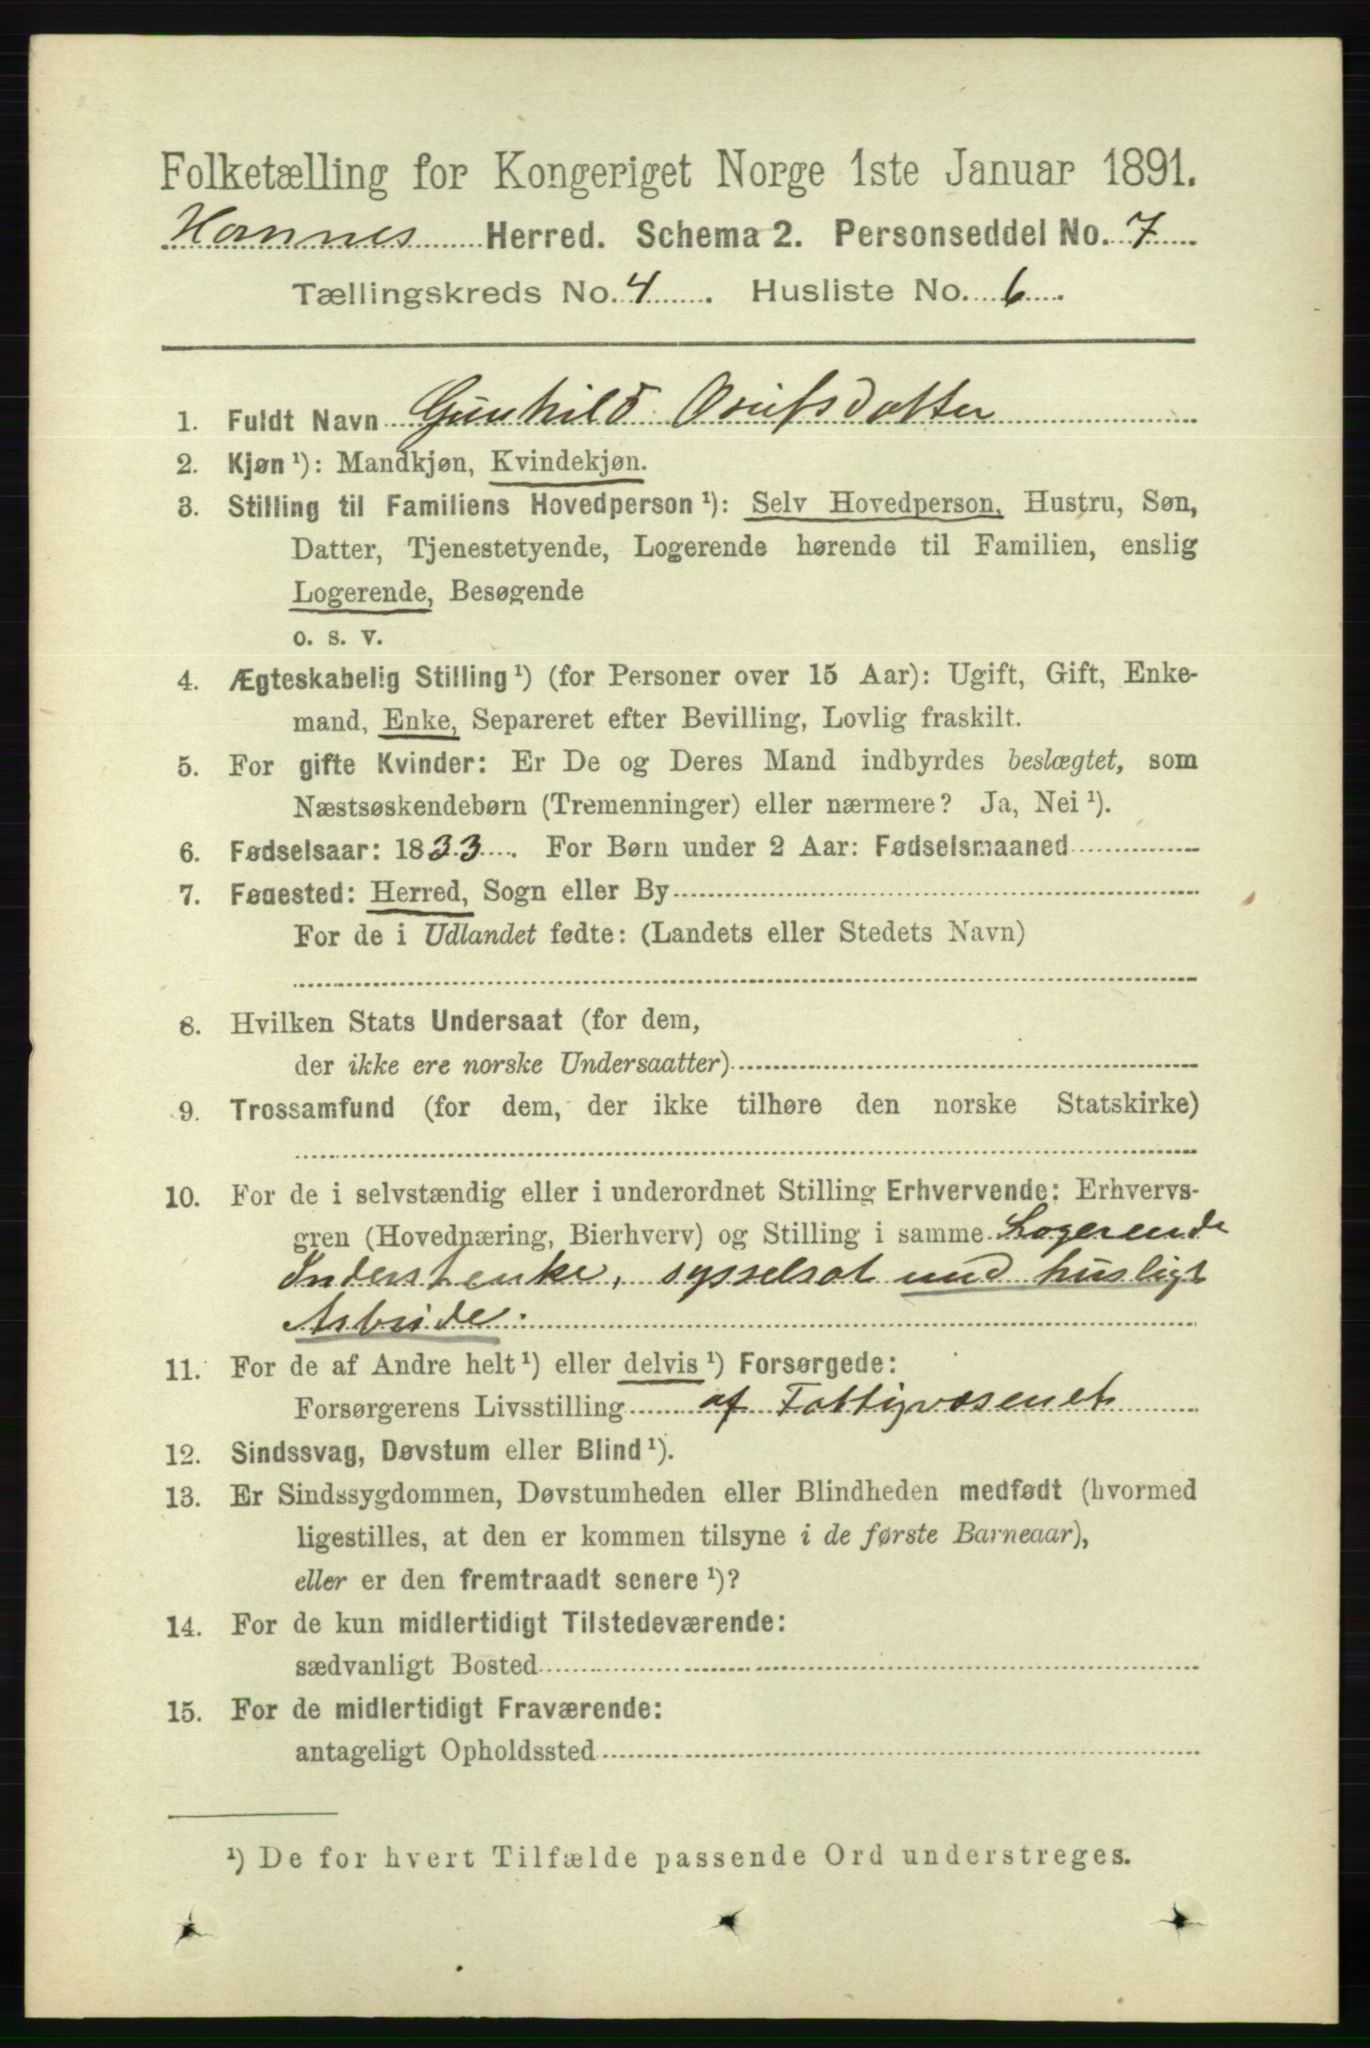 Folketælling for Kongeriget Norge 1ste Januar 1891.
Hornnes Herred. Schema 2. Personseddel No. 7
Tællingskreds No. 4. Husliste No. 6.
1. Fuldt Navn Gunhild
2. Kjøn ¹): Mandkjøn, Kvindekjøn.
3. Stilling til Familiens Hovedperson ¹): Selv Hovedperson, Hustru, Søn,
Datter, Tjenestetyende, Logerende hørende til Familien, enslig
Logerende, Besøgende
o. s. v.
4. Ægteskabelig Stilling ¹) (for Personer over 15 Aar): Ugift, Gift, Enke-
mand, Enke, Separeret efter Bevilling, Lovlig fraskilt.
5. For gifte Kvinder: Er De og Deres Mand indbyrdes beslægtet, som
Næstsøskendebørn (Tremenninger) eller nærmere? Ja, Nei ¹).
6. Fødselsaar: 1833. For Børn under 2 Aar: Fødselsmaaned
7. Fødested: Herred, Sogn eller By
For de i Udlandet fødte: (Landets eller Stedets Navn)
8. Hvilken Stats Undersaat (for dem,
der ikke ere norske Undersaatter)
9. Trossamfund (for dem, der ikke tilhøre den norske Statskirke)
10. For de i selvstændig eller i underordnet Stilling Erhvervende: Erhvervs-
gren (Hovednæring, Bierhverv) og Stilling i samme Logerende
Inderstenke, sysselsat med husligt
Arbeide.
11. For de af Andre helt ¹) eller delvis ¹) Forsørgede:
Forsørgerens Livsstilling af Fattigvæsenet
12. Sindssvag, Døvstum eller Blind ¹).
13. Er Sindssygdommen, Døvstumheden eller Blindheden medfødt (hvormed
ligestilles, at den er kommen tilsyne i de første Barneaar),
eller er den fremtraadt senere ¹)?
14. For de kun midlertidigt Tilstedeværende:
sædvanligt Bosted
15. For de midlertidigt Fraværende:
antageligt Opholdssted
¹) De for hvert Tilfælde passende Ord understreges.